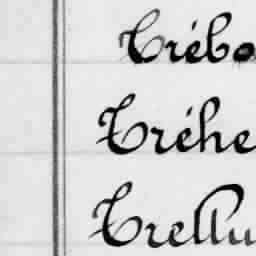 Trébo
Tréhe
Trellu